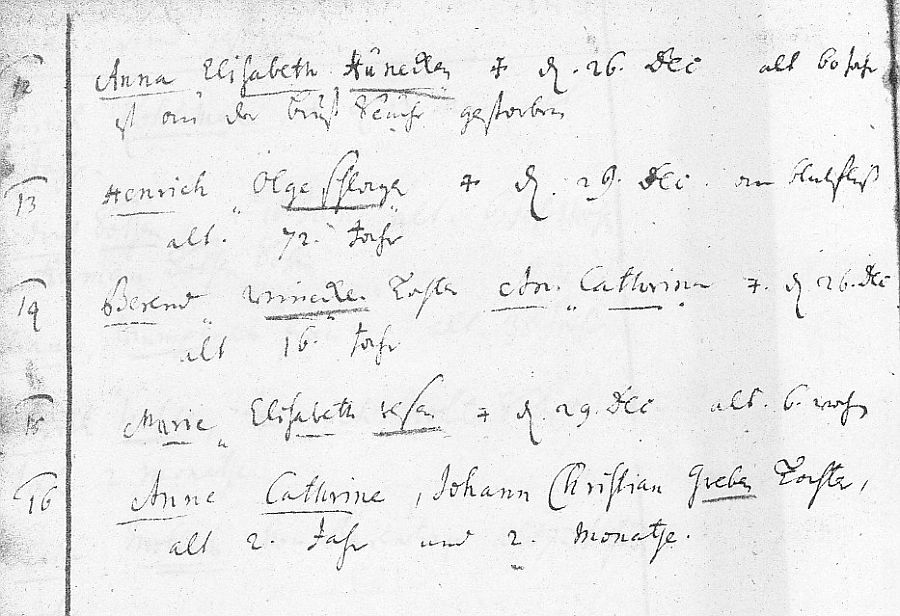 12 Anna Elisabeth Hünecken † d. 26. Dec alt 60 Jahr
ist an der brust Seuche gestorben
13 Henrich 29. Dec. am blutfluß
alt. 72. Jahr
14 Berend Tochter An. Cathrine †. d 26. Dec
alt 16. Jahr
15 Marie Elisabeth † d. 29. Dec alt. 6. woch
16 Anne Cathrine, Johann Christian Greben Tochter,
alt 2. Jahr und 2. Monathe.